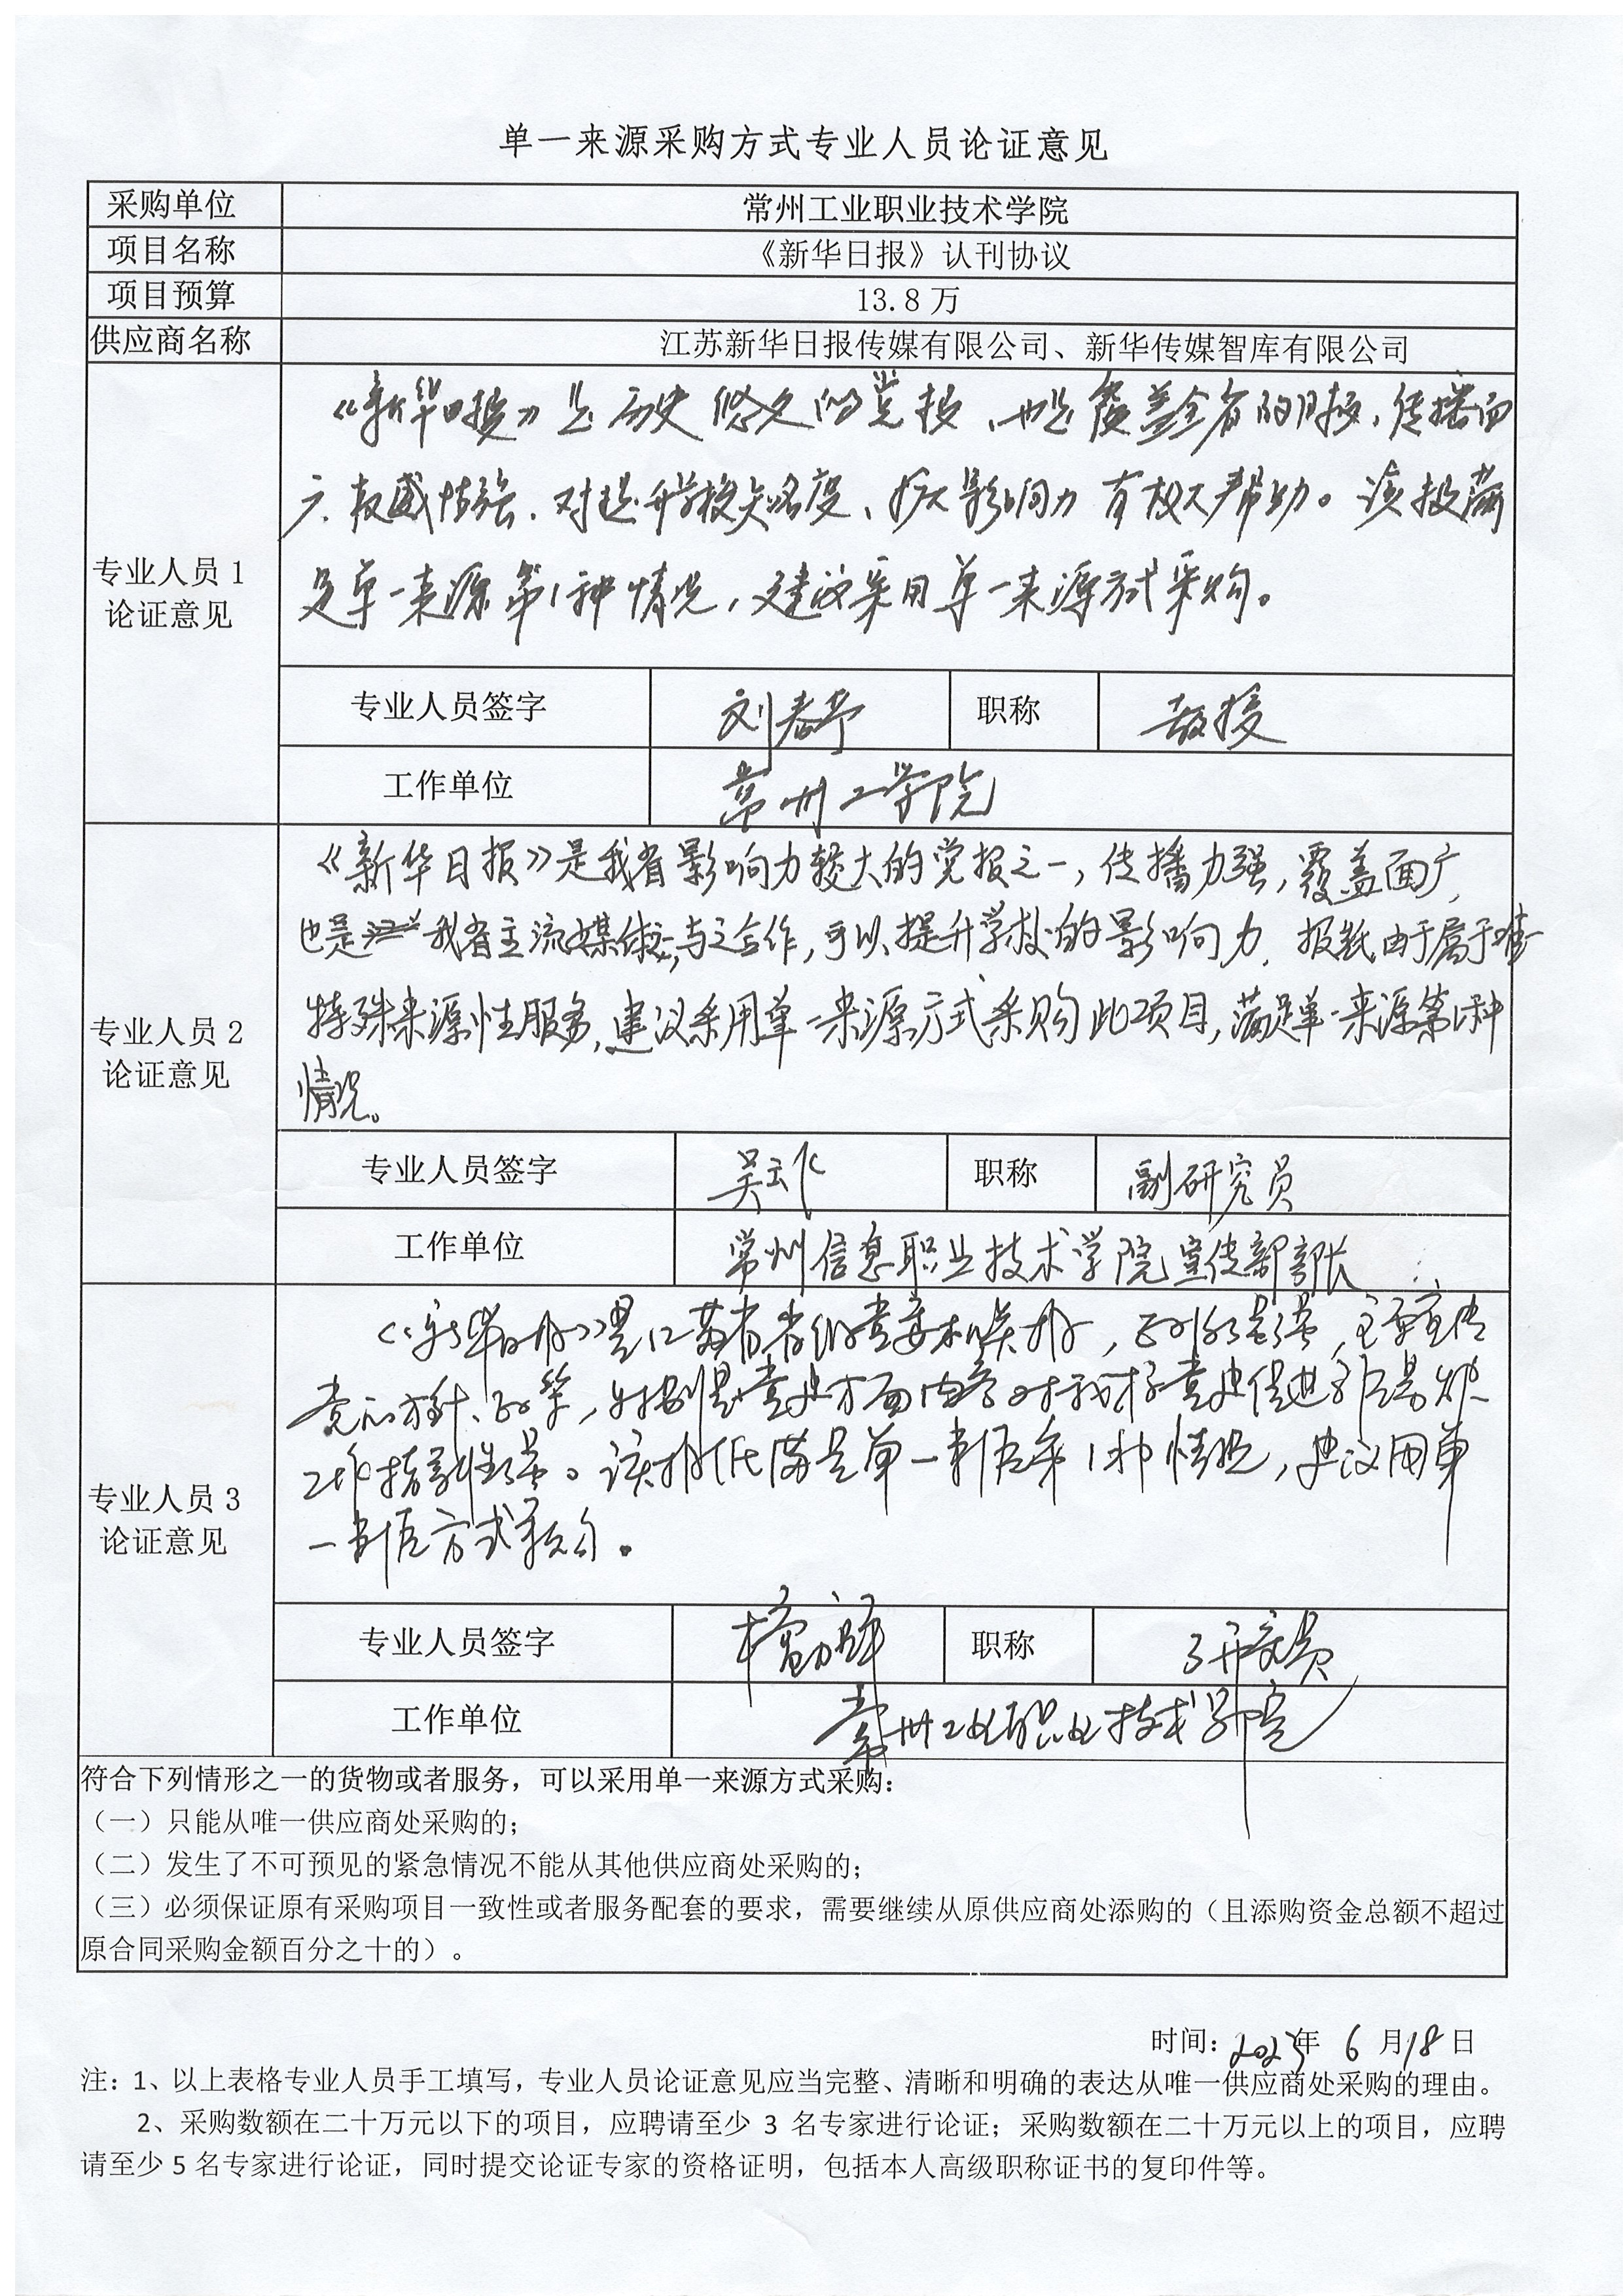 单一来源采购方式专业人员论证意见
采购单位 常州工业职业技术学院
项目名称 《新华日报》认刊协议
项目预算 13.8 万
供应商名称 江苏新华日报传媒有限公司、新华传媒智库有限公司
专业人员 1
论证意见
《新华日报》是历史悠久的党报、也是覆盖全省的日报，传播面
广、权威性强，对提升学校知名度、扩大影响力有极大帮助。该报满
足单一来源第1种情况，建议采用单一来源方式采购。
专业人员签字 刘春 职称 教授
工作单位 常州工学院
专业人员 2
论证意见
《新华日报》是我省影响力较大的党报之一，传播力强，覆盖面广，
也是我省主流媒体，与之合作，可以提升学校的影响力，报纸由于属于
特殊来源性服务，建议采用单一来源方式采购此项目，满足单一来源第1种
情况。
专业人员签字 吴 职称 副研究员
工作单位 常州信息职业技术学院宣传部部长
专业人员 3
论证意见
《新华日报》是江苏省省级党委机关报，政治性强，主要宣传
党的方针、政策，特别是党建方面内容对我校党建促进
工作指导性强。该报纸满足单一来源第1种情况，建议用单
一来源方式采购。
专业人员签字 职称 研究员
工作单位 常州工业职业技术学院
符合下列情形之一的货物或者服务，可以采用单一来源方式采购：
（一）只能从唯一供应商处采购的；
（二）发生了不可预见的紧急情况不能从其他供应商处采购的；
（三）必须保证原有采购项目一致性或者服务配套的要求，需要继续从原供应商处添购的（且添购资金总额不超过
原合同采购金额百分之十的）。
时间：2023年 6 月18日
注：1、以上表格专业人员手工填写，专业人员论证意见应当完整、清晰和明确的表达从唯一供应商处采购的理由。
2、采购数额在二十万元以下的项目，应聘请至少 3 名专家进行论证；采购数额在二十万元以上的项目，应聘
请至少 5 名专家进行论证，同时提交论证专家的资格证明，包括本人高级职称证书的复印件等。